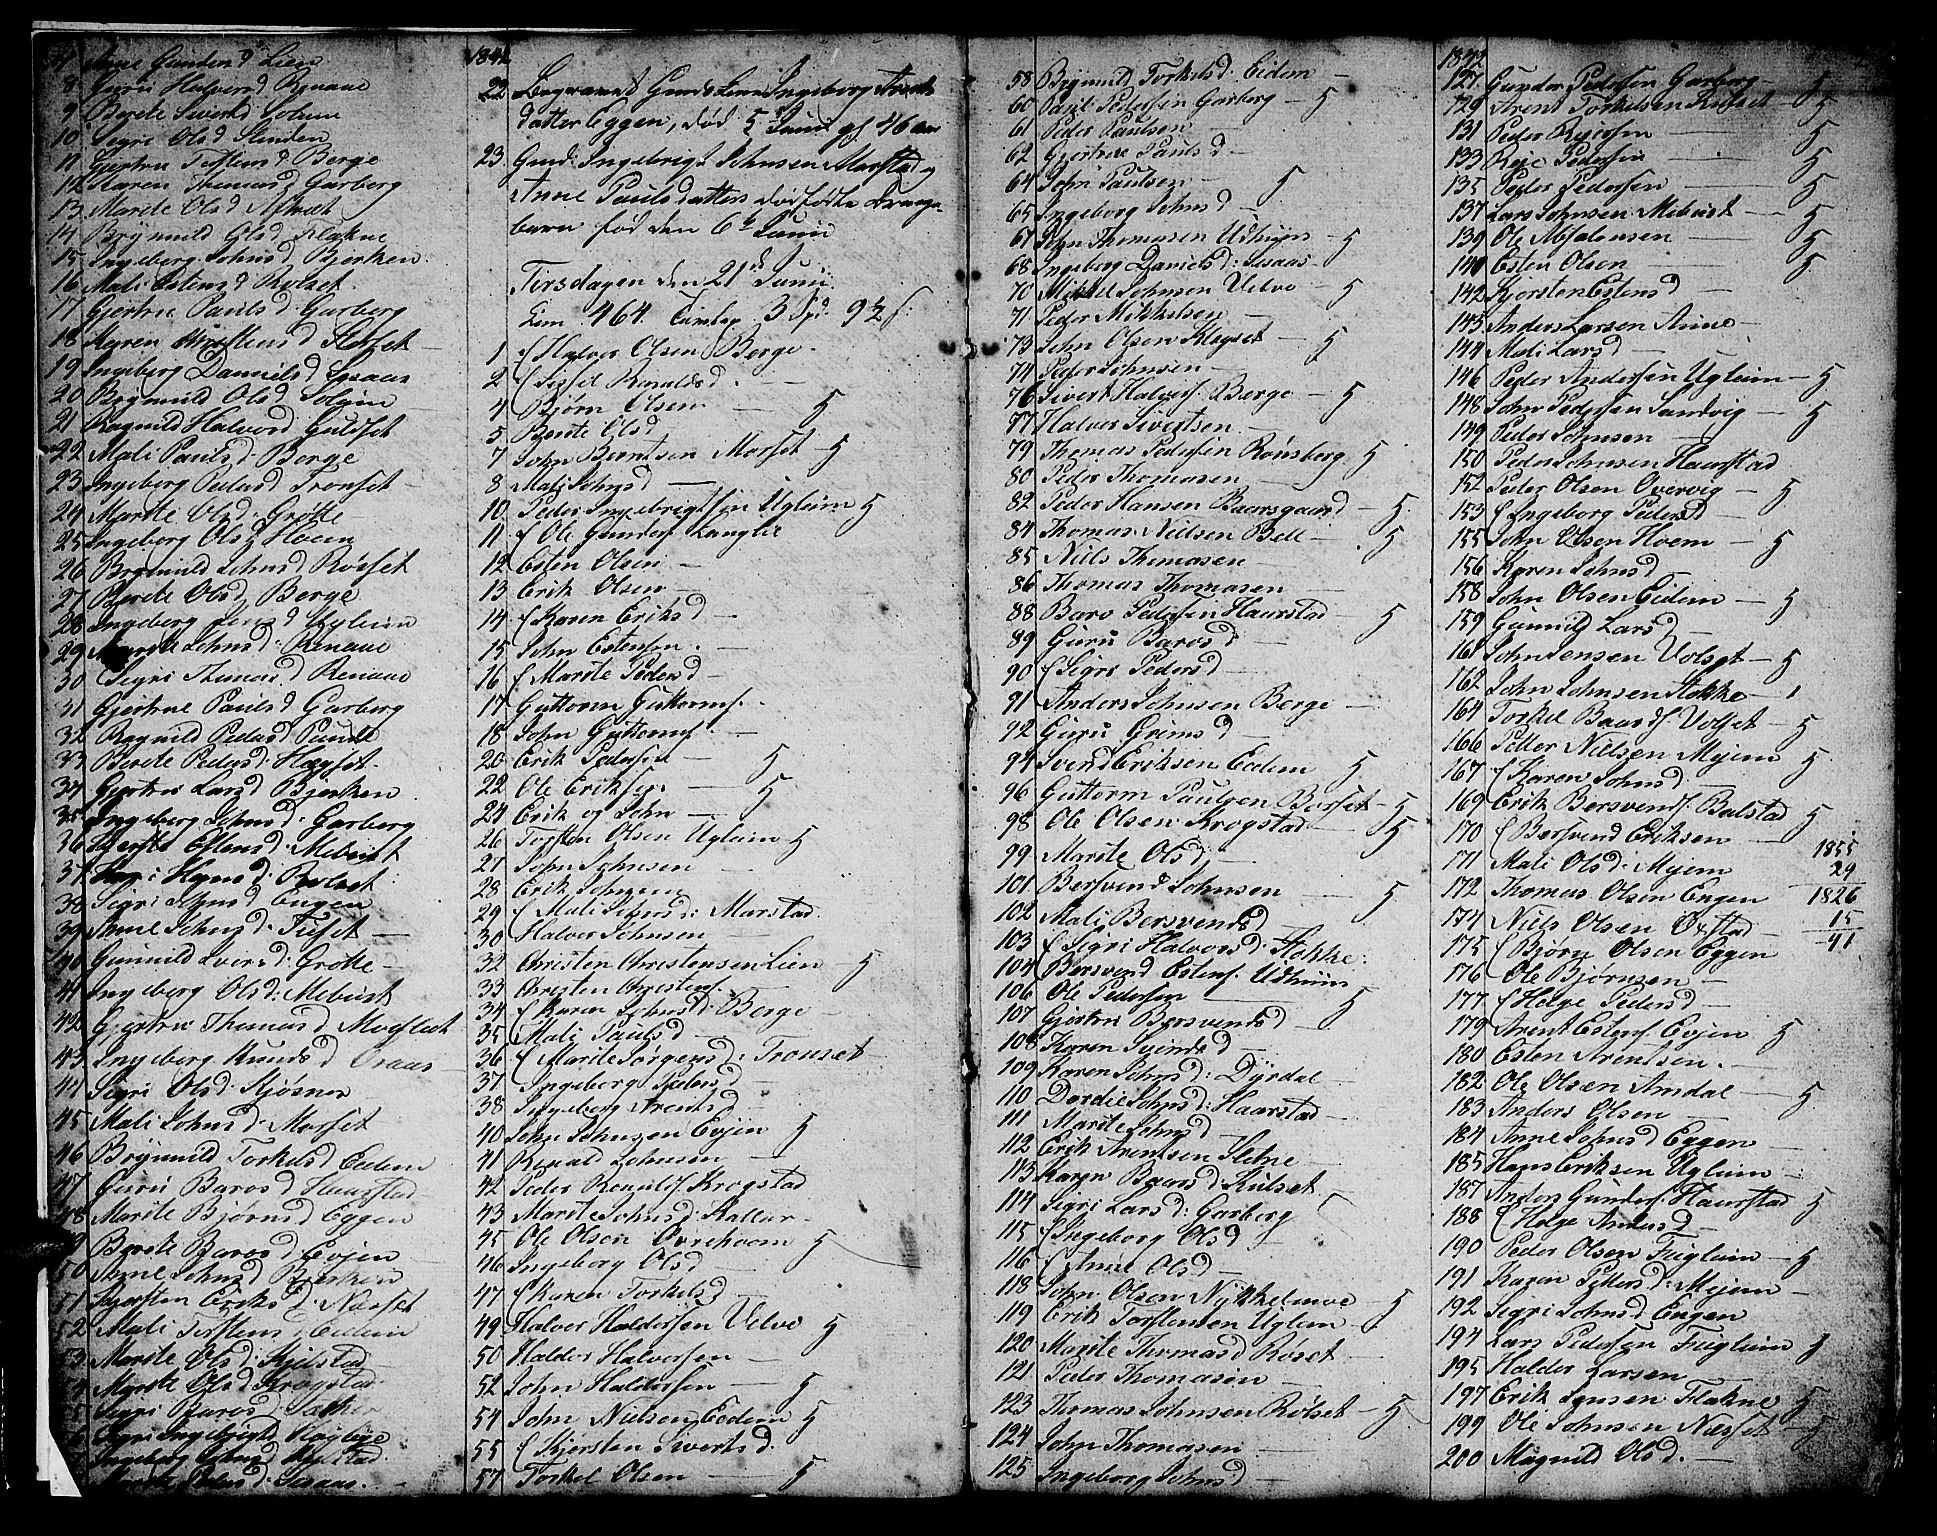 7 Anne Gunders d Lien
8 Guru Halvorsd Renaae
9 Berete Sivertsd Solem
10 Segri Olsd Stenden
11 Gjertru Torstens d Berge
12 Karen Thomas d Garberg
13 Marite Olsd
14 Brynnild Olsd Flakne
15 Ingeborg Johnsd Bjerken
16 Mali Estens d Rolset
17 Gjertru Pauls d Garberg
18 Karen d Slotset
19 Ingeborg Daniels d
20 Brynnild Olsd Solem
21 Ragnild Halvord Gulset
22 Mali Pauls d. Berge
23 Ingeborg Pedersd Tronset
24 Marite Olsd: Grotte
25 Ingeborg Olsd Hoem
26 Brynnild Johnsd Rolset
27 Berete Olsd Berge
28 Ingeborg d Ugleim
29 Marite Johnsd: Renaae
30 Segri Thomas d Renaae
31 Gjertrue Paulsd Garberg
32 Ragnild Pedersd
33 Berete Pedersd: Høyset
34 Gjertru Larsd Bjerken
35 Ingeborg Johnsd: Garberg
36 Estens d: Mebust
37 Rolset
38 Sigri Engen
39 Anne Johnsd: Fuset
40 Gunnild Iversd: Grotte
41 Ingeborg Olsd: Mebust
42 Gjertru Thomas d Moeslet
43 Ingeborg Knuds d Oraas
44 Sigri Olsd: Kjøsnes
45 Mali Johnsd: Morset
46 Brynnild Torkelsd Eidem
47 Guru Baros d Haarstad
48 Marite Bjørns d Eggen
49 Berete Baros d Evjen
50 Anne Johnsd Bjerken
51 Kjersten Eriks d: Narset
52 Mali Torstens d Eidem
53 Marite Olsd: Kjelstad
54 Marite Olsd Krogstad
55 Sigri Baros d
56 Sigri
57 Ingeborg
Marite Pedersd.
1842
22. Begravet Ingeborg Arnts
datter Eggen, død 5 Juni gl 46 aar
23. Gmd: Ingebrigt Johnsen Morstad og
Anne Paulsdatters dødfødte Drenge-
barn fød den 6te Juni
Tirsdagen den 21de Juni
464. 3 Spd. 9½ f:
1 Halvor Olsen Berge
2 Sissil Ronaldsd. —
4 Bjørn Olsen — 5
5 Berete Olsd
7 John Berntsen Morset — 5
8 Mali Johnsd —
10 Peder Ingebrigtsen Ugleim 5
11 Ole Gunders Langlie
12 Esten Olsen —
13 Erik Olsen —
14 Karen Eriks d —
15 John Estensen. —
16 Marite Pedersd —
17 Guttorm Guttormsn. —
18 John Guttormsn —
20 Erik Pedersen — 5
22 Ole Eriksen — 5
24 Erik og John —
26 Torsten Olsen Ugleim 5
27 John Johnsen —
28 Erik Johnsen
29 Mali Johnsd: Morstad
30 Halvor Johnsen —
32 Christen Christensen Lien — 5
33 Christen Christens
34 Karen Johnsd: Berge —
35 Mali Paulsd —
36 Marite Jørgensd: Tronset —
37 Ingeborg Pedersd —
38 Ingeborg Arentsd —
40 John Johnsen Evjen 5
41 Ronald Johnsen —
42 Peder Ronalds Krogstad
43 Marite Johnsd: Kallar —
45 Ole Olsen Ovrehoem 5
46 Ingeborg Olsd —
47 Karen Torkelsd —
49 Halvor Haldorsen Velve 5
50 Haldor Halvorsen —
52 John Haldorsen — 5
54 John Nielsen Eedem 5
55 Kjersten Sivertsd.
57 Torkel Olsen — 5
58 Brynnild Torkelsd: Eidem —
60 Paul Pedersen Garberg — 5
61 Peder Paulsen —
62 Gjertrue Pauls d —
64 John Paulsen — 5
65 Ingeborg Johnsd —
67 John Thomasen Udhuus — 5
68 Ingeborg Daniels d:
70 Mikkel Johnsen Velve — 5
71 Peder Mikkelsen —
73 John Olsen Kløset — 5
74 Peder Johnsen —
76 Sivert Halvors. Berge — 5
77 Halvor Sivertsen —
79 Thomas Pedersen Rønsberg 5
80 Peder Thomasen —
82 Peder Hansen Baarsgaard — 5
84 Thomas Nielsen Bell — 5
85 Niels Thomasen —
86 Thomas Thomasen —
88 Baro Pedersen Haarstad — 5
89 Guru Barosd —
90 Sigri Pedersd —
91 Anders Johnsen Berge —
92 Guru Grims d —
94 Svend Eriksen Eedem 5
96 Guttorm Paulsen Borset — 5
98 Ole Olsen Krogstad — 5
99 Marite Olsd —
101 Bersvend Johnsen — 5
102 Mali Bersvends d —
103 Sigri Halvors d: Stokke
104 Bersvend Estens. Udhuus
106 Ole Pedersen — 5
107 Gjertru Bersvendsd —
108 Karen Svends d —
109 Karen Johnsd: Dyrdal
110 Dordie Johnsd: Haarstad —
111 Marite Johnsd —
112 Erik Arentsen Sletne —
113 Karen Baars d: Kulset —
114 Sigri Lars d: Garberg
115 Ingeborg Olsd —
116 Anne Olsd —
118 John Olsen Nykkelmoe — 5
119 Erik Torstensen Ugleim — 5
120 Marite Thomasd Roset —
121 Peder Thomasen —
123 Thomas Johnsen Rolset — 5
124 John Thomasen —
125 Ingeborg Johnsd —
1842
127 Gunder Pedersen Garberg — 5
129 Arent Torkelsen Kulset — 5
131 Peder — 5
133 Pedersen — 5
135 Peder Pedersen — 5
137 Lars Johnsen Mebust — 5
139 Ole Absalonsen — 5
140 Esten Olsen — 5
142 Kjersten Estensd —
145 Anders Larsen Aune —
144 Mali Larsd —
146 Peder Andersen Ugleim — 5
148 John Pedersen Sandvig — 5
149 Peder Johnsen —
150 Peder Johnsen Haarstad
152 Peder Olsen Overvig — 5
153 Ingeborg Pedersd —
155 John Olsen Hoem — 5
156 Karen Johnsd
158 John Olsen Eidem — 5
159 Gunnild Larsd —
161 John Jensen Volset — 5
162 John Johnsen Stokke — 1
164 Torkel Baards. Volset — 5
166 Petter Nielsen Mjem 5
167 Karen Johnsd —
169 Erik Bersvends. Balstad 5
170 Bersvend Eriksen —
171 Mali Olsd: Mjem 1855
172 Thomas Olsen Engen 29
174 Niels Olsen Ostad — 1826
175 Bjørn Olsen Eggen 15
176 Ole Bjørnsen — 41
177 Helge Pedersd —
179 Arent Estens. Evjen 5
180 Esten Arentsen. —
182 Ole Olsen Amdal — 5
183 Anders Olsen —
184 Anne Johnsd Eggen —
185 Hans Eriksen Ugleim —
187 Anders Gunders. Haarstad 5
188 Helge Andersd —
190 Peder Olsen Fugleim — 5
191 Karen Petters d: Mjem —
192 Sigri Johnsd: Engen
194 Lars Pedersen Fugleim 5
195 Haldor Larsen —
197 Erik Jensen Flakne 5
199 Ole Johnsen Næsset — 5
200 Magnild Olsd. —